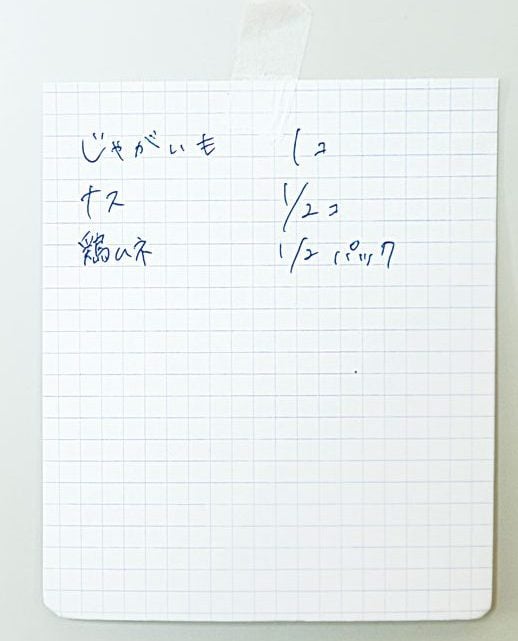 じゃがいも 1コ
ナス 1/2コ
鶏ムネ 1/2パック